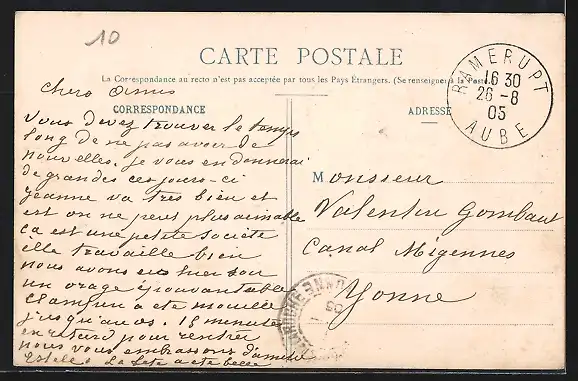 10
CARTE POSTALE
La Correspondance au recto n'est pas acceptée par tous les Pays Étrangers. (Se renseigner à la Poste.)
CORRESPONDANCE
ADRESSE
RAMERUPT
16 30
26 - 8
05
AUBE
chers amis
Vous devez trouver le temps
long de ne pas avoir de
nouvelles. je vous en donnerai
de grandes ces jours-ci
jeanne va tres bien et
est on ne peut plus aimable
ca est une petite societe
elle travaille bien
nous avons eu hier soir
un orage épouvantable
a ete mouille
jusqu'au os. 15 minutes
en retard pour rentrer
nous vous embrassons d'amitié
La fete a ete belle
Monsieur
Valentin Gombaut
Canal Migennes
Yonne